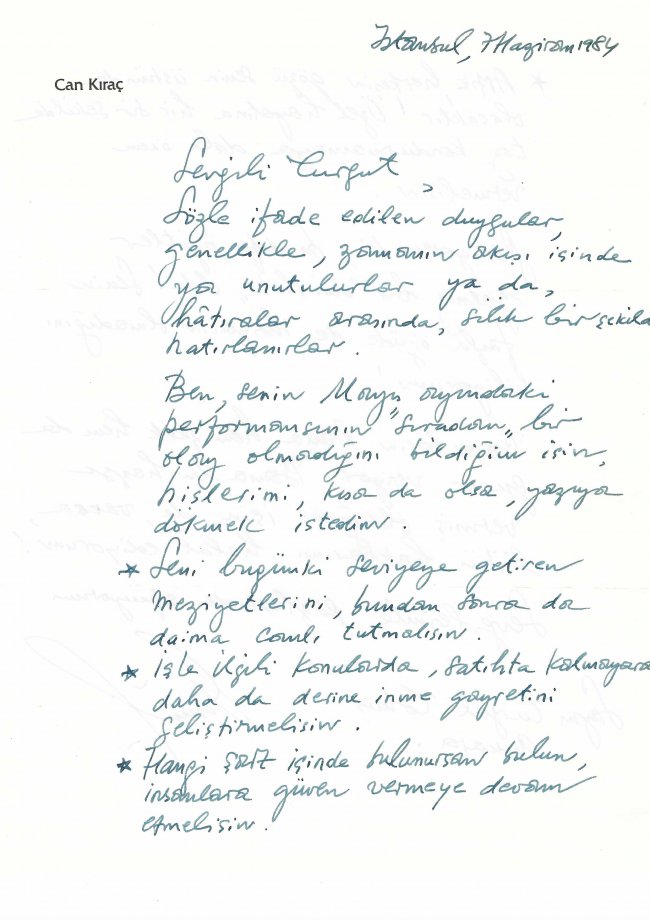 İstanbul, 7 Haziran 1984
Can Kıraç
Sevgili Turgut,
Sözle ifade edilen duygular,
genellikle, zamanın akışı içinde
ya unutulurlar ya da,
hâtıralar arasında, silik bir şekilde
hatırlanırlar.
Ben, senin Mayıs ayındaki
performansının "sıradan" bir
olay olmadığını bildiğim için,
hislerimi, kısa da olsa, yazıya
dökmek istedim.
* Seni bugünki seviyeye getiren
meziyetlerini, bundan sonra da
daima canlı tutmalısın.
* İşle ilgili konularda, satıhta kalmayarak
daha da derine inme gayretini
geliştirmelisin.
* Hangi şart içinde bulunursan bulun,
insanlara güven vermeye devam
etmelisin.